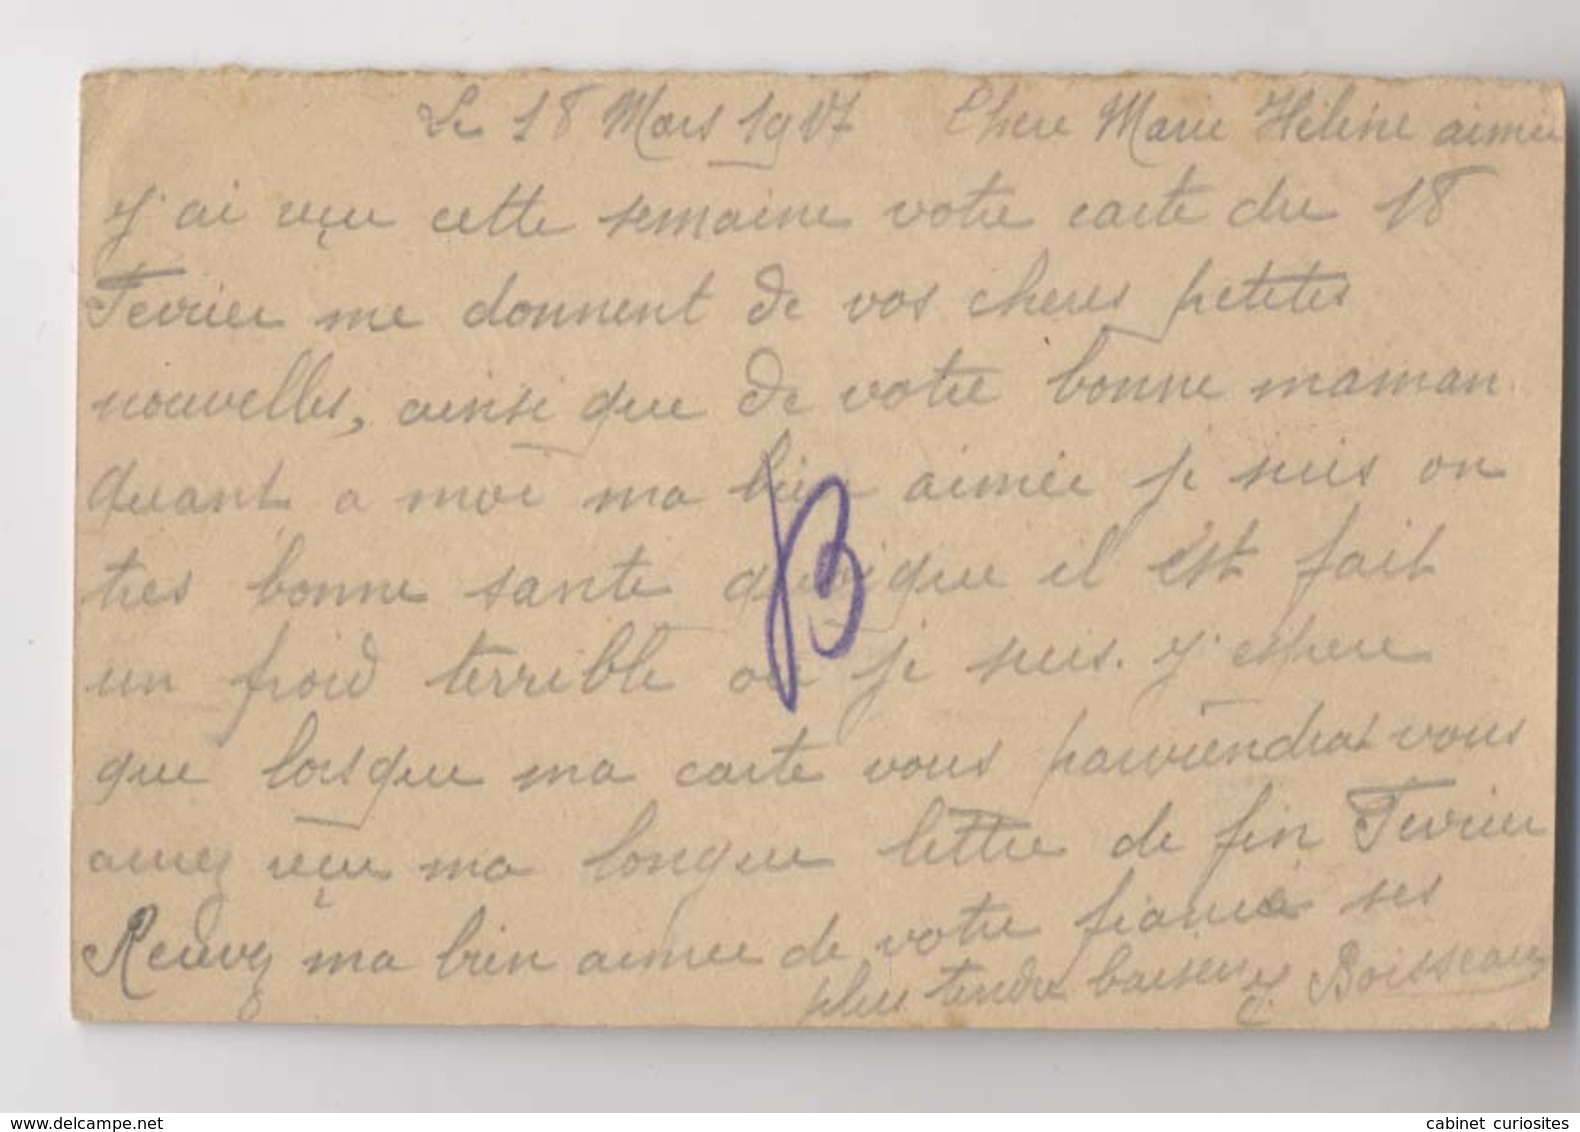 Le 18 Mars 1917 Chere Marie Hélène aimée
J'ai reçu cette semaine votre carte du 18
Fevrier me donnent de vos cheres petites
nouvelles, ainsi que de votre bonne maman.
Quant a moi ma bien aimée je suis en
tres bonne sante quoique il est fait
un froid terrible ou je suis. J'espere
que lorsque ma carte vous parviendrat vous
aurez reçu ma longue lettre de fin Fevrier
Recevez ma bien aimée de votre fiancé ses
plus tendre baisers J Boisseau
B
delcampe.net
cabinet curiosites